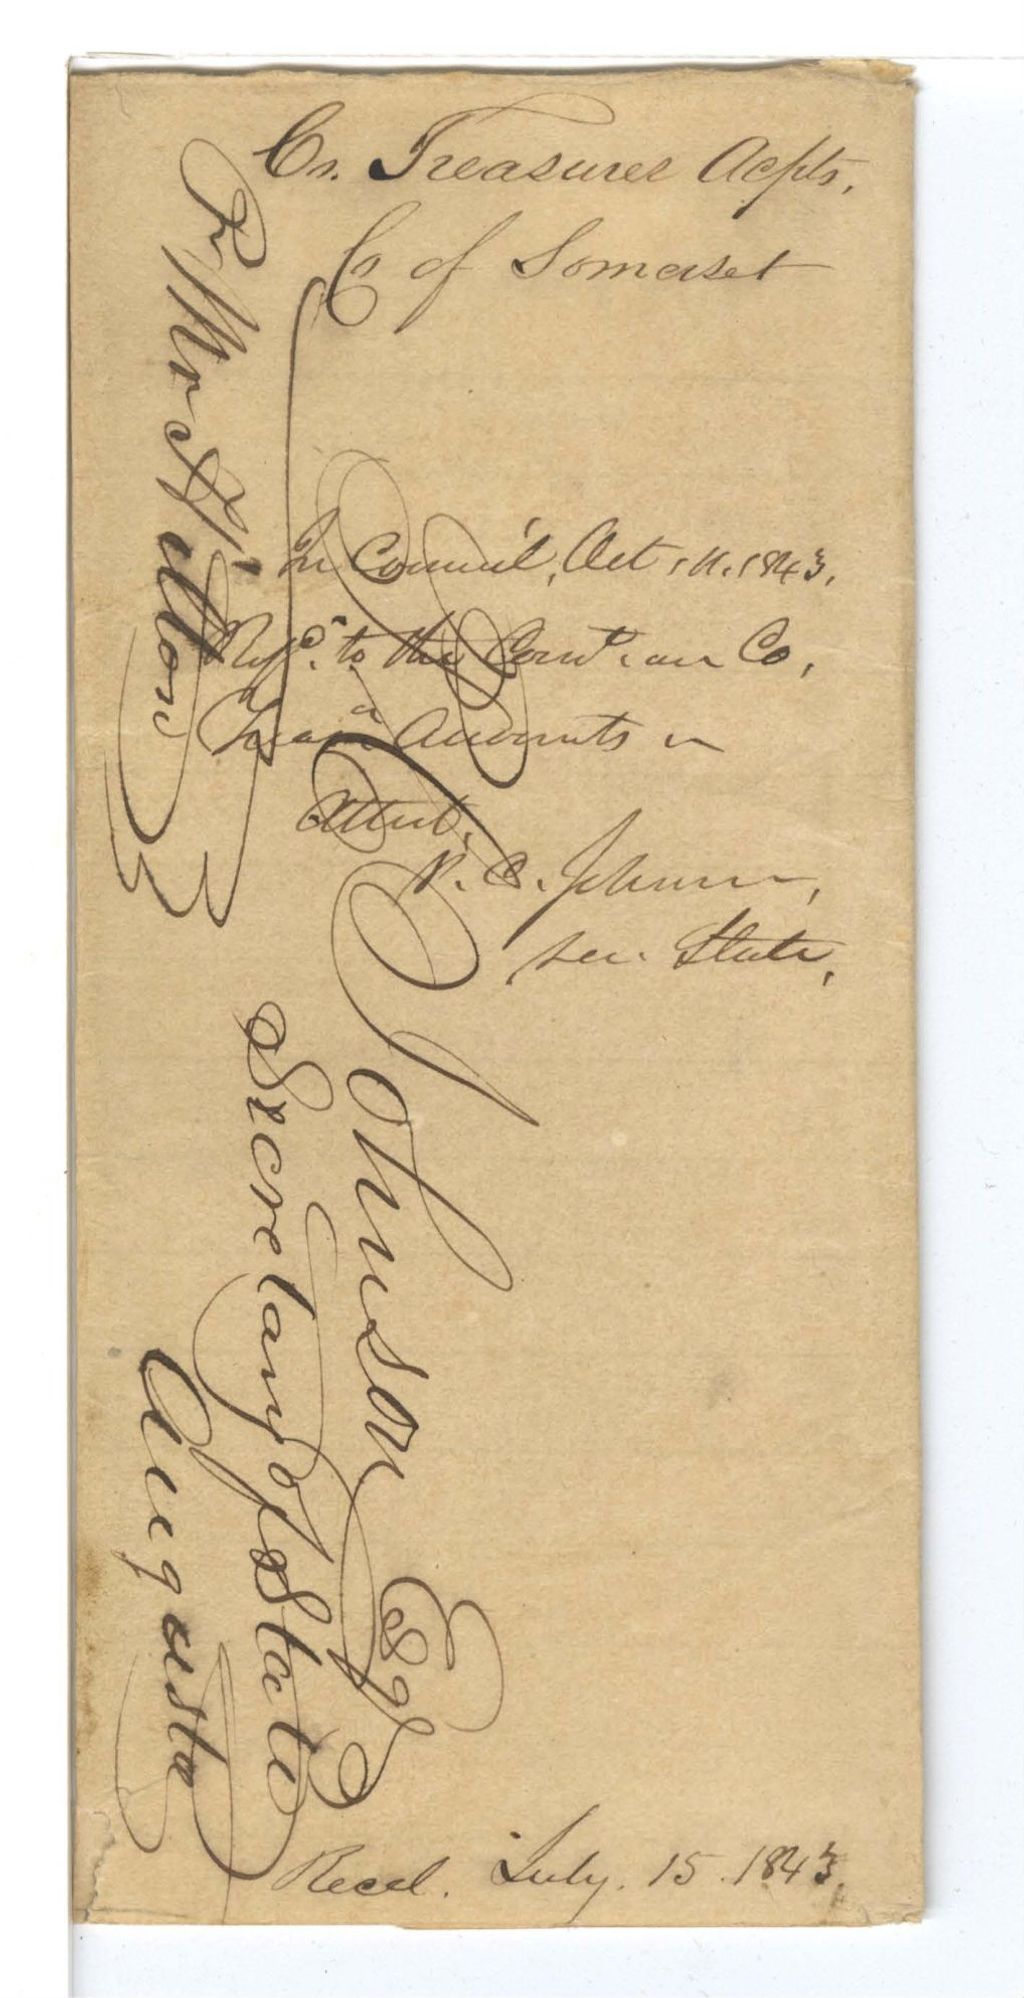 Co. Treasurer Acpts,
Co of Somerset
In Council, Oct. 11. 1843,
Refd. to the Comt. on Co,
Treas. Accounts
Attest,
P. C. Johnson,
Sec. State,
Recd. July. 15. 1843.
P C Johnson Esqr
Secretary of State
Augusta
Pr Mr Hilton